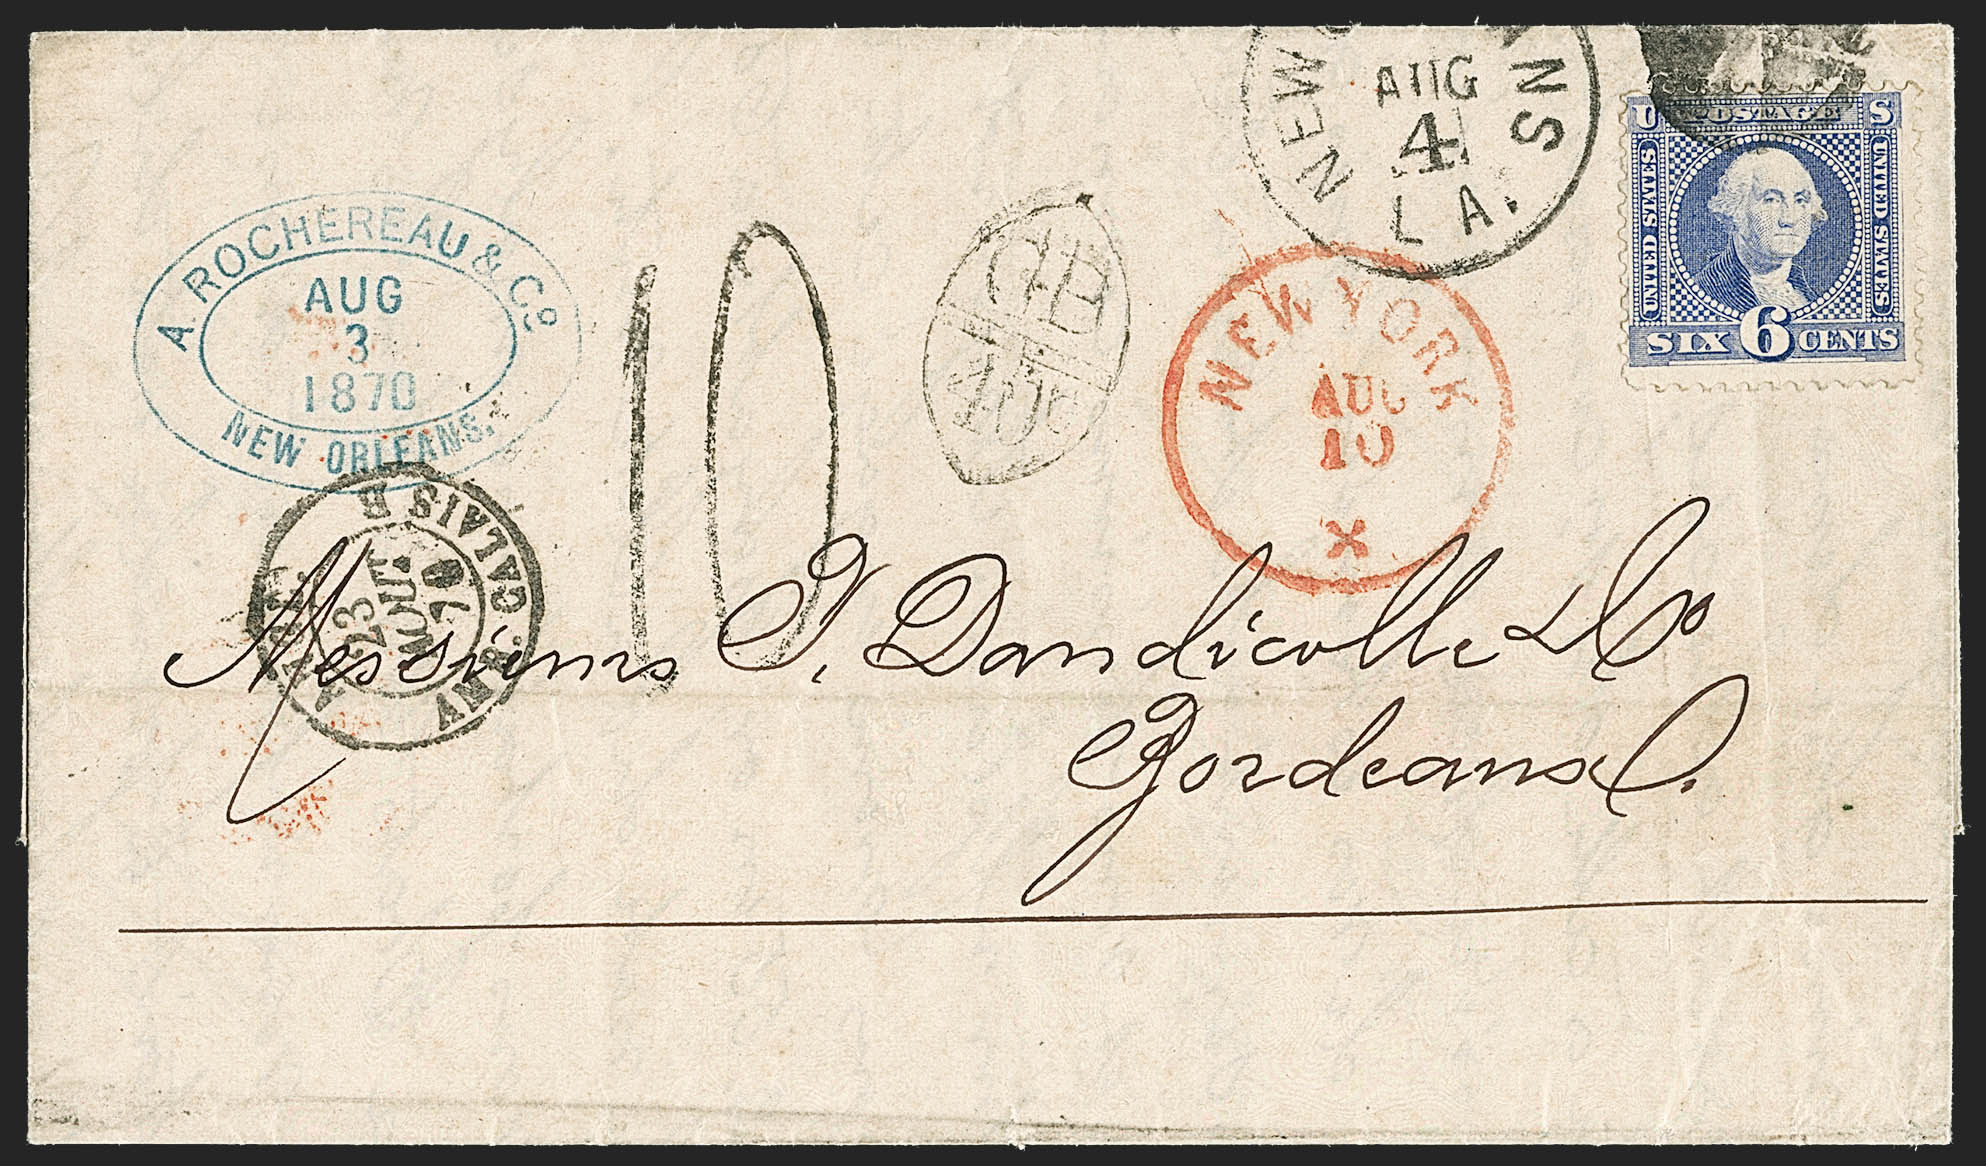 NEW O NS
AUG
4
LA.
U POSTAGE S
UNITED STATES
UNITED STATES
SIX 6 CENTS
A. ROCHEREAU & Co.
AUG
3
1870
NEW ORLEANS.
10
GB
40c
NEW YORK
AUG
10
X
CALAIS
23
AOUT
70
Messieurs J. Dandicolle & Co
Bordeaux.